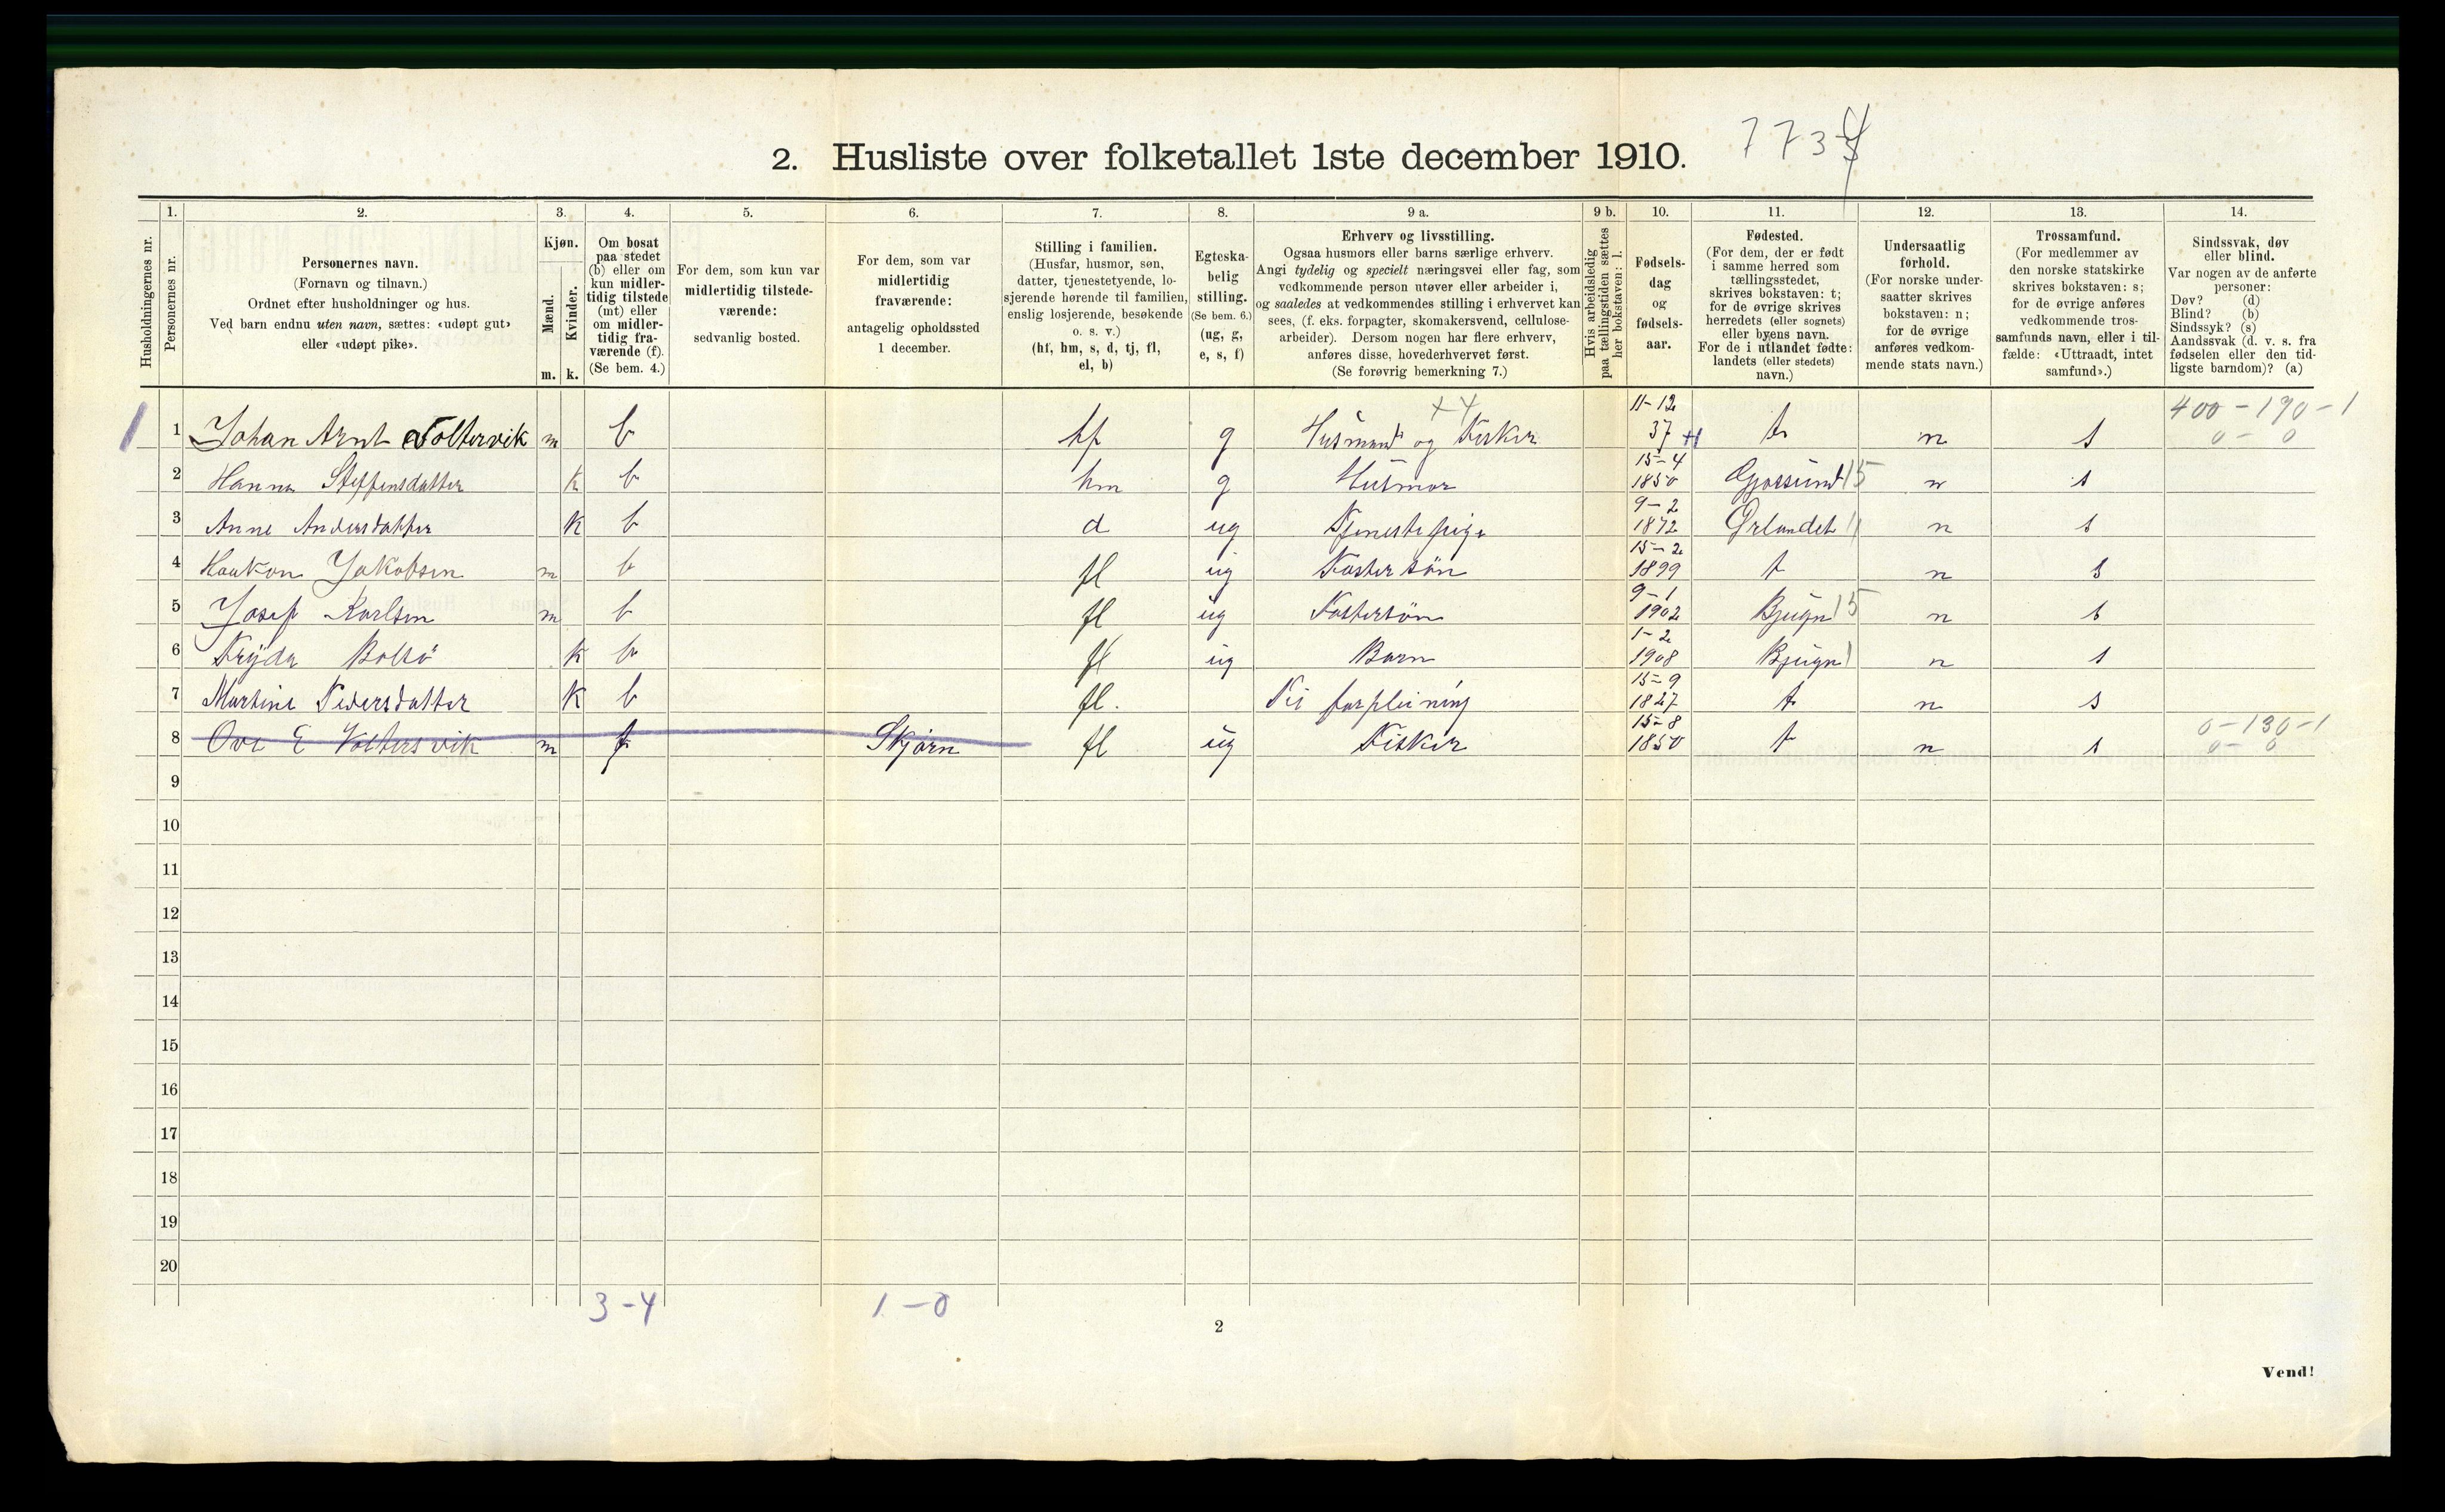 2. Husliste over folketallet 1ste december 1910.
Husholdningernes nr.
1.
Personernes nr.
2.
Personernes navn.
(Fornavn og tilnavn.)
Ordnet efter husholdninger og hus.
Ved barn endnu uten navn, sættes: «udøpt gut»
eller «udøpt pike».
3.
Kjøn.
Mænd.
Kvinder.
m. k.
4.
Om bosat
paa stedet
(b) eller om
kun midler-
tidig tilstede
(mt) eller
om midler-
tidig fra-
værende (f).
(Se bem. 4.)
5.
For dem, som kun var
midlertidig tilstede-
værende:
sedvanlig bosted.
6.
For dem, som var
midlertidig
fraværende:
antagelig opholdssted
1 december.
7.
Stilling i familien.
(Husfar, husmor, søn,
datter, tjenestetyende, lo-
sjerende hørende til familien,
enslig losjerende, besøkende
o. s. v.)
(hf, hm, s, d, tj, fl,
el, b)
8.
Egteska-
belig
stilling.
(Se bem. 6.)
(ug, g,
e, s, f)
9 a.
Erhverv og livsstilling.
Ogsaa husmors eller barns særlige erhverv.
Angi tydelig og specielt næringsvei eller fag, som
vedkommende person utøver eller arbeider i,
og saaledes at vedkommendes stilling i erhvervet kan
sees, (f. eks. forpagter, skomakersvend, cellulose-
arbeider). Dersom nogen har flere erhverv,
anføres disse, hovederhvervet først.
(Se forøvrig bemerkning 7.)
9 b.
Hvis arbeidsledig
paa tællingstiden sættes
her bokstaven: l.
10.
Fødsels-
dag
og
fødsels-
aar.
11.
Fødested.
(For dem, der er født
i samme herred som
tællingsstedet,
skrives bokstaven: t;
for de øvrige skrives
herredets (eller sognets)
eller byens navn.
For de i utlandet fødte:
landets (eller stedets)
navn.)
12.
Undersaatlig
forhold.
(For norske under-
saatter skrives
bokstaven: n;
for de øvrige
anføres vedkom-
mende stats navn.)
13.
Trossamfund.
(For medlemmer av
den norske statskirke
skrives bokstaven: s;
for de øvrige anføres
vedkommende tros-
samfunds navn, eller i til-
fælde: «Uttraadt, intet
samfund».)
14.
Sindssvak, døv
eller blind.
Var nogen av de anførte
personer:
Døv? (d)
Blind? (b)
Sindssyk? (s)
Aandssvak (d. v. s. fra
fødselen eller den tid-
ligste barndom)? (a)
1 1 Johan Arnt m b hf g Husmand og Fisker 11-12 37 t n s 400-190-1 0-0
2 Hanna Steffensdatter k b hm g Husmor 15-4 1850 15 n s
3 Anne Andersdatter k b d ug Tjenestepige 9-2 1872 Ørlandet n s
4 Haakon Jakobsen m b fl ug Fostersøn 15-2 1899 t n s
5 Josef Karlsen m b fl ug Fostersøn 9-1 1902 Bjugn 15 n s
6 k b fl ug Barn 1-2 1908 Bjugn n s
7 Martine Pedersdatter k b fl. 15-9 1827 t n s
8 Ove E m f Skjørn fl ug Fisker 15-8 1850 t n s 0-130-1 0-0
9
10
11
12
13
14
15
16
17
18
19
20
3-4 1-0
2
Vend!